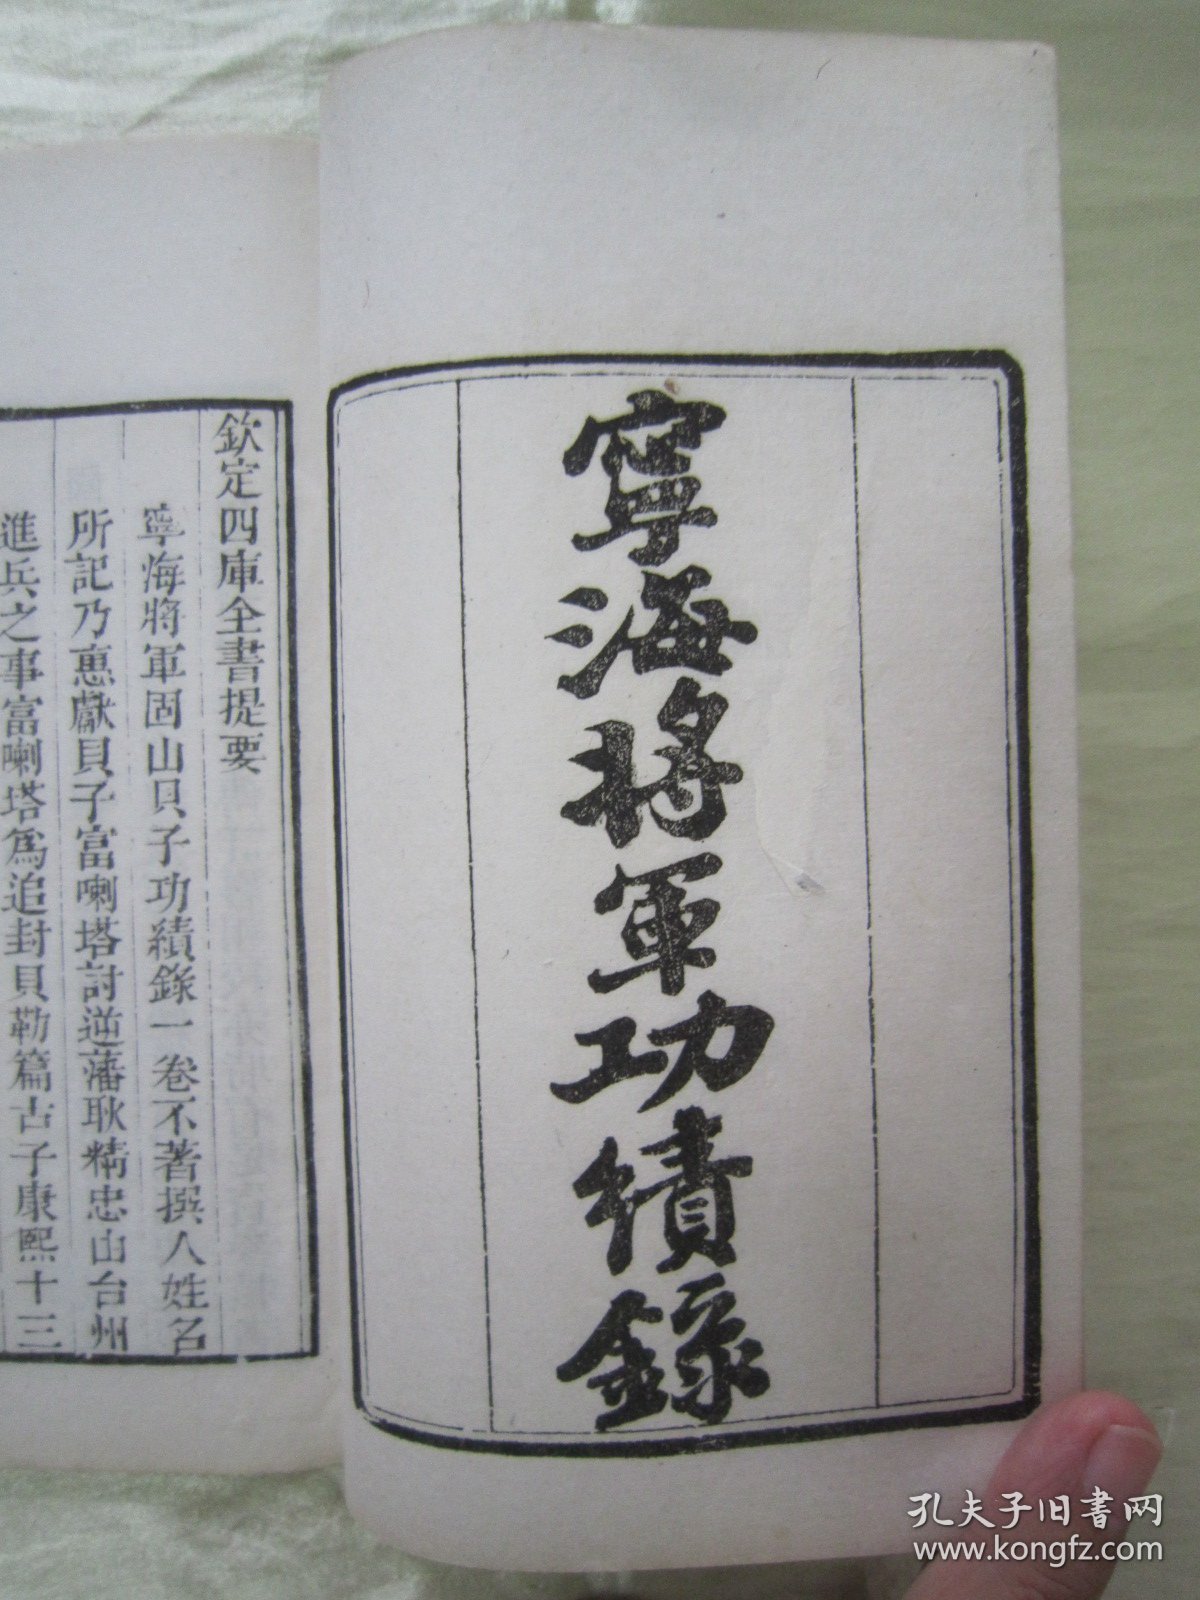 寧海將軍功績錄
欽定四庫全書提要
寧海將軍固山貝子功績錄一卷不著撰人姓名
所記乃惠獻貝子富喇塔討逆藩耿精忠由台州
進兵之事富喇塔爲追封貝勒篇古子康熙十三
孔夫子旧书网
www.kongfz.com